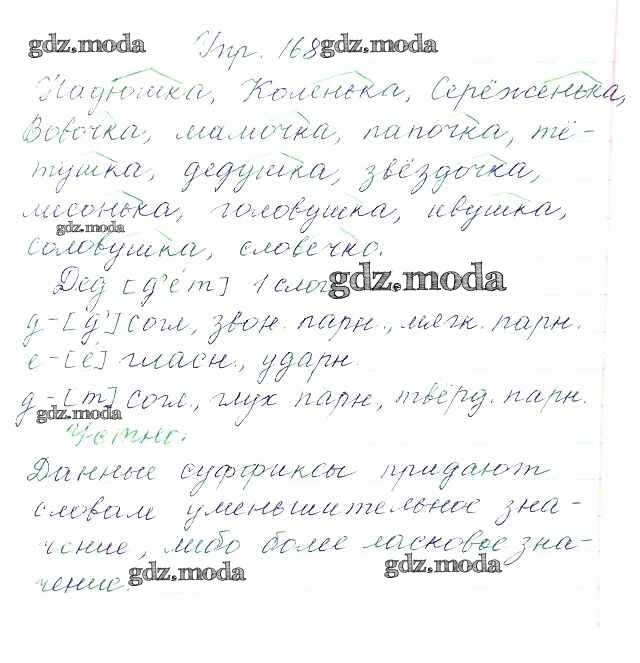 gdz.moda Упр. 168 gdz.moda
Надюшка, Коленька, Серёженька,
Вовочка, мамочка, папочка, тё-
тушка, дедушка, звёздочка,
лисонька, головушка, ивушка,
gdz.moda
соловушка, словечко.
Дед [д'е́т] 1 слог. gdz.moda
д-[д'] согл., звон. парн., мягк. парн.
е-[е́] гласн., ударн.
д-[т] согл., глух парн., твёрд. парн.
gdz.moda
Устно.
Данные суффиксы придают
словам уменьшительное зна-
чение, либо более ласковое зна-
чение. gdz.moda gdz.moda